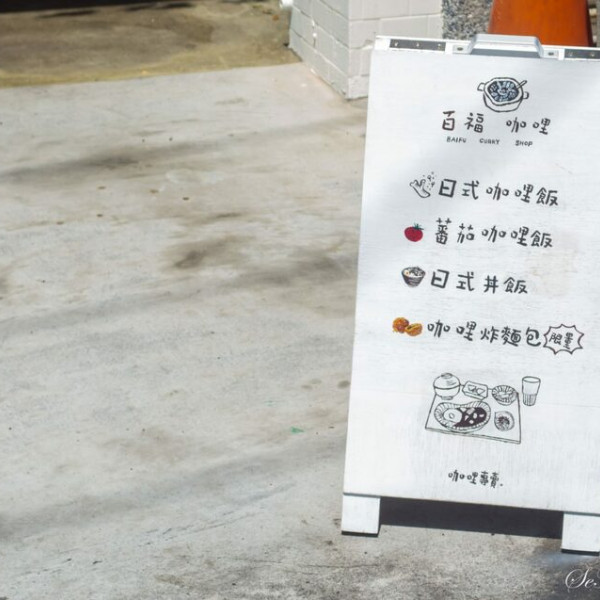 百福 咖哩
BAIFU CURRY SHOP
日式咖哩飯
蕃茄咖哩飯
日式丼飯
咖哩炸麵包 限量
咖哩專賣.